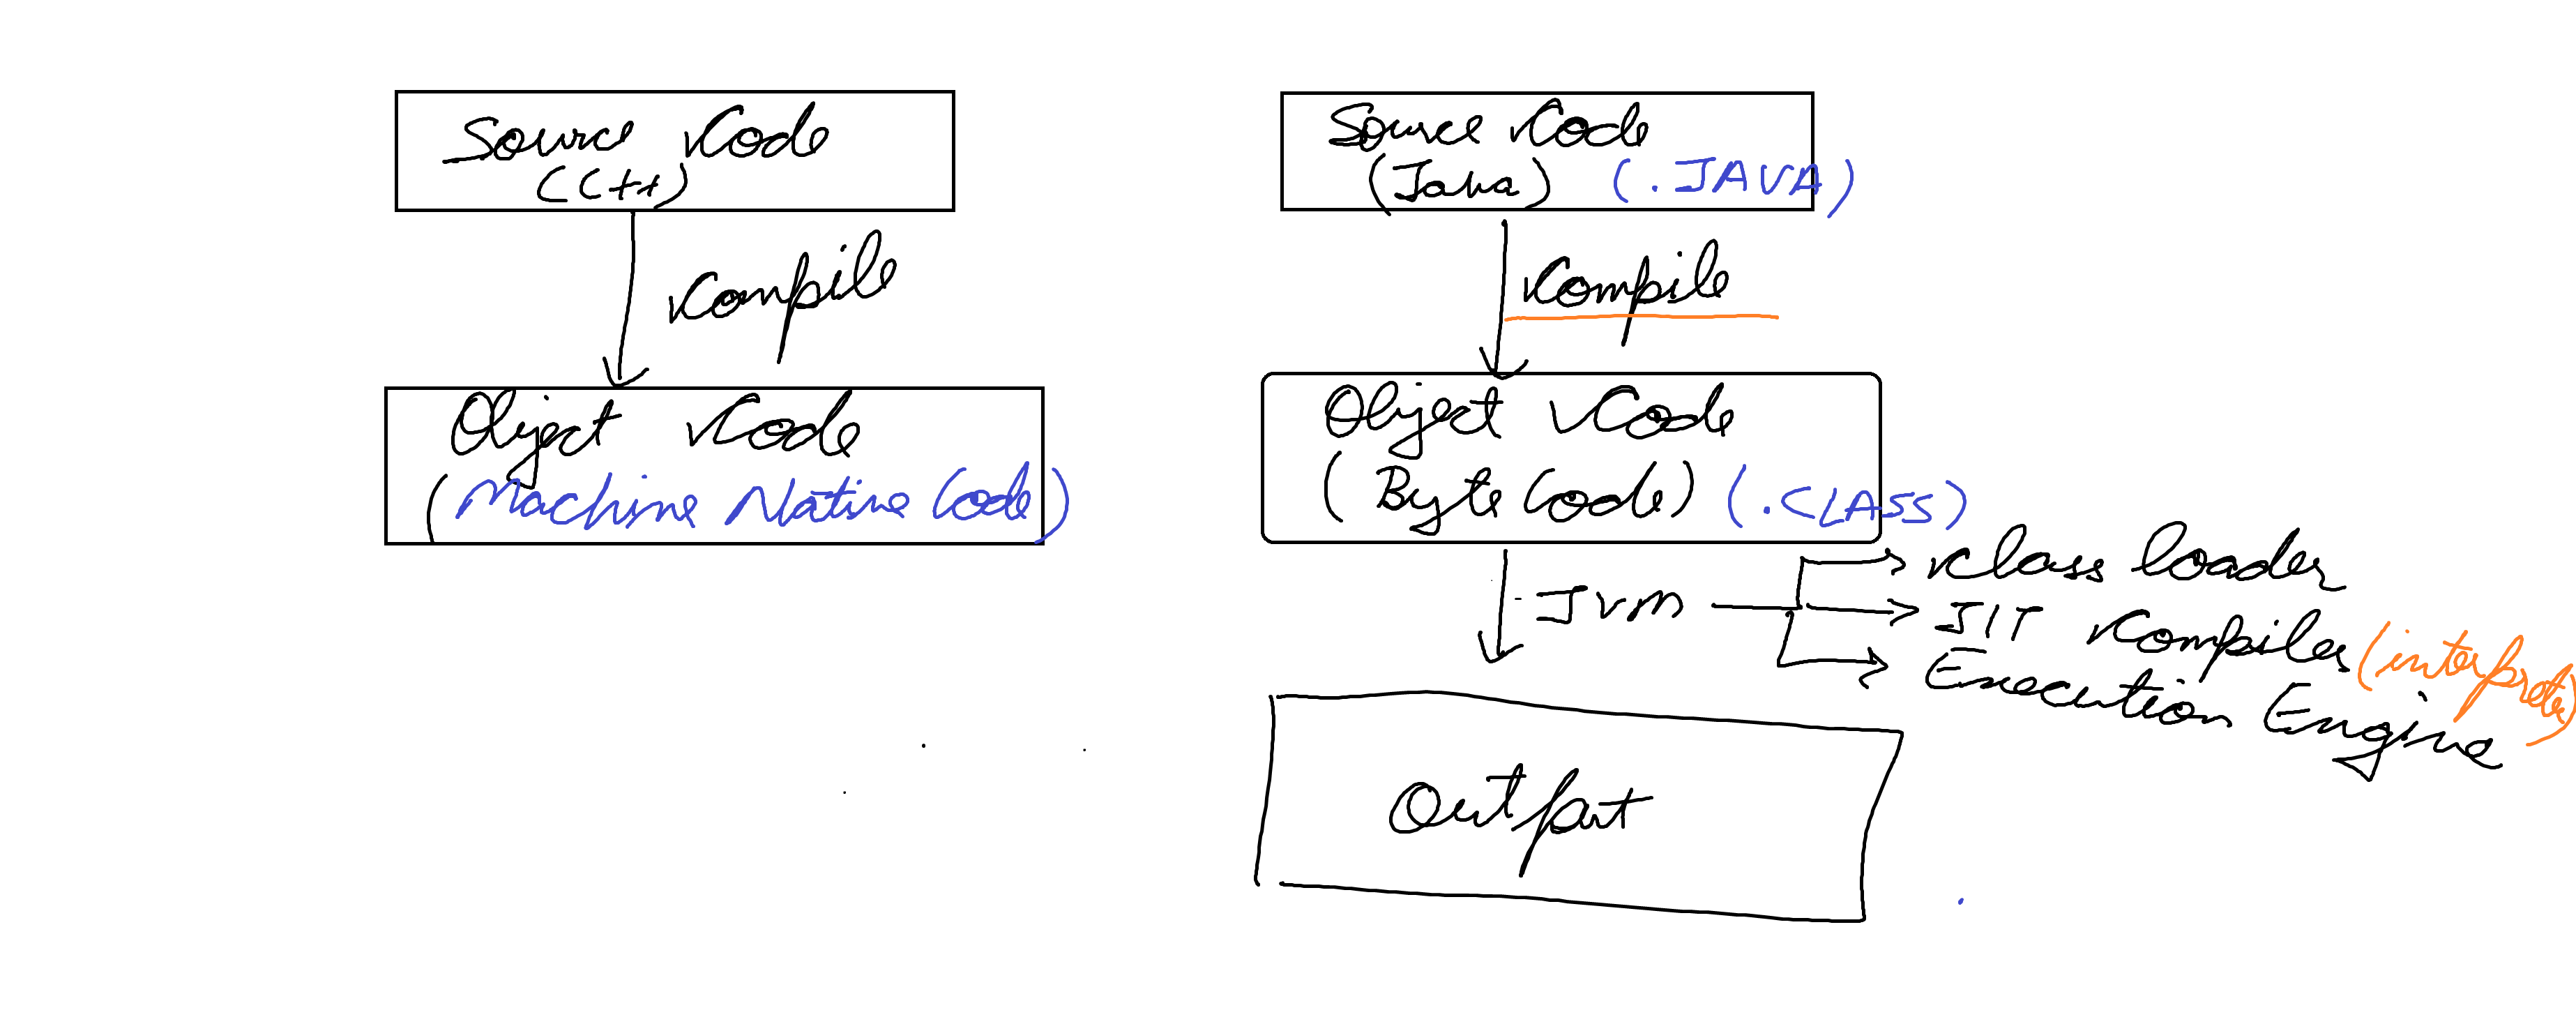 Source Code
(C++)
Compile
Object Code
(Machine Native Code)
Source Code
(Java) (.JAVA)
Compile
Object Code
(Byte Code) (.CLASS)
- JVM
Class loader
JIT Compiler (interpreter)
Execution Engine
Output